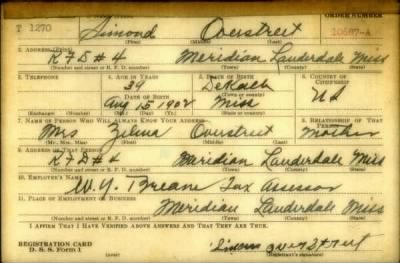 ORDER NUMBER
T 1270 Simond Overstreet
(First) (Middle) (Last)
R F D # 4 Meridian Lauderdale Miss
(Number and street or R. F. D. number) (Town) (County) (State)
3. TELEPHONE 4. AGE IN YEARS 5. PLACE OF BIRTH 6. COUNTRY OF CITIZENSHIP
39 DeKalb
DATE OF BIRTH
Aug 15 1902 Miss US
7. NAME OF PERSON WHO WILL ALWAYS KNOW YOUR ADDRESS 8. RELATIONSHIP OF THAT PERSON
Mrs Zelma Overstreet Mother
(Mr., Mrs., Miss) (First) (Middle) (Last)
9. ADDRESS OF THAT PERSON
R F D # 4 Meridian Lauderdale Miss
(Number and street or R. F. D. number) (Town) (County) (State)
10. EMPLOYER'S NAME
W. Y. Tax Assessor
11. PLACE OF EMPLOYMENT OR BUSINESS
Meridian Lauderdale Miss
(Number and street or R. F. D. number) (Town) (County) (State)
I AFFIRM THAT I HAVE VERIFIED ABOVE ANSWERS AND THAT THEY ARE TRUE.
REGISTRATION CARD
D. S. S. Form 1
(Registrant's signature)